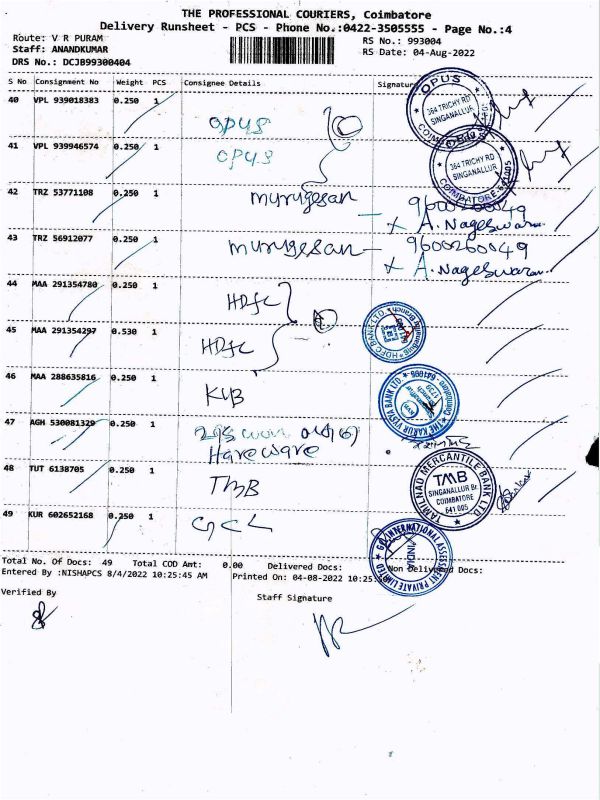 THE PROFESSIONAL COURIERS, Coimbatore
Delivery Runsheet - PCS - Phone No.:0422-3505555 - Page No.:4
Route: V R PURAM
RS No.: 993004
Staff: ANANDKUMAR
RS Date: 04-Aug-2022
DRS No.: DCJB99300404
S No Consignment No Weight PCS Consignee Details Signature
40 VPL 939018383 0.250 1 OPUS
OPUS 364 TRICHY RD SINGANALLUR COIMBATORE
41 VPL 939946574 0.250 1 OPUS
OPUS 364 TRICHY RD SINGANALLUR COIMBATORE-641 005
42 TRZ 53771108 0.250 1 murugesan 9600260049
A. Nageswaran
43 TRZ 56912077 0.250 1 murugesan 9600260049
A. Nageswaran
44 MAA 291354780 0.250 1 HDFC
HDFC BANK LTD.
45 MAA 291354297 0.530 1 HDFC
46 MAA 288635816 0.250 1 KVB
THE KARUR VYSYA BANK LTD.
47 AGH 530081329 0.250 1
Hareware
48 TUT 6138705 0.250 1 TMB
TAMILNAD MERCANTILE BANK LTD.
TMB
SINGANALLUR Br.
COIMBATORE
641 005
49 KUR 602652168 0.250 1
INTERNATIONAL ASSESSMENT PRIVATE LIMITED
INDIA
Total No. Of Docs: 49 Total COD Amt: 0.00 Delivered Docs: Non Delivered Docs:
Entered By :NISHAPCS 8/4/2022 10:25:45 AM Printed On: 04-08-2022 10:25
Verified By
Staff Signature